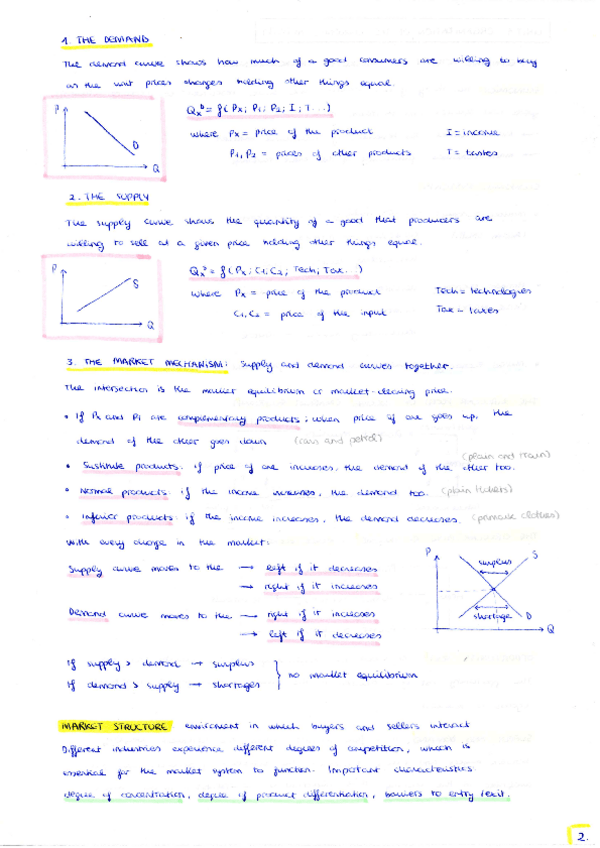 1. THE DEMAND
The demand curve shows how much of a good consumers are willing to buy
as the unit prices changes holding other things equal.
P
D
Q
Qxᴰ = f( Px; P1; P2; I; T...)
where Px = price of the product
I = income
P1, P2 = prices of other products
T = tastes
2. THE SUPPLY
The supply curve shows the quantity of a good that producers are
willing to sell at a given price holding other things equal.
P
S
Q
Qxˢ = f( Px; C1; C2; Tech; Tax...)
where Px = price of the product
Tech = technologies
C1, C2 = price of the input
Tax = taxes
3. THE MARKET MECHANISM: supply and demand curves together.
The intersection is the market equilibrium or market-clearing price.
• If Px and P1 are complementary products: when price of one goes up, the
demand of the other goes down (cars and petrol)
(plain and train)
• Sustitute products: if price of one increases, the demand of the other too.
• Normal products: if the income increases, the demand too. (plain tickets)
• Inferior products: if the income increases, the demand decreases. (primark clothes)
With every change in the market:
Supply curve moves to the → left if it decreases
→ right if it increases
Demand curve moves to the → right if it increases
→ left if it decreases
P
S
surplus
shortage
D
Q
If supply > demand → surplus
If demand > supply → shortages
no market equilibrium
MARKET STRUCTURE enviroment in which buyers and sellers interact
Different industries experience different degrees of competition, which is
essential for the market system to function. Important characteristics:
degree of concentration, degree of product differentiation, barriers to entry/exit.
2.